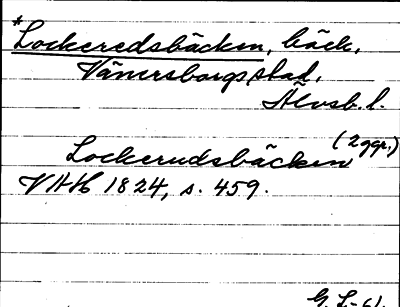 *Lockeredsbäcken, bäck,
Vänersborgs stad,
Älvsb. l.
(2 ggr.)
Lockerudsbäcken
VAH 1824, s. 459.
G. L. -61.